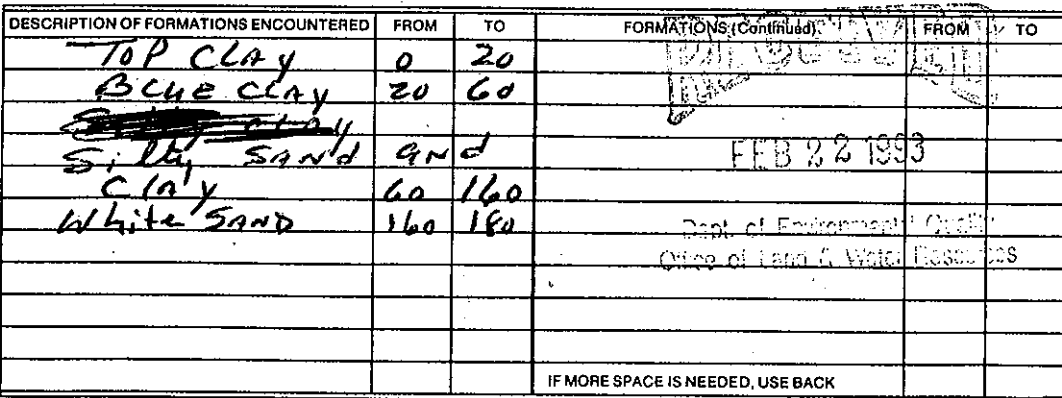 DESCRIPTION OF FORMATIONS ENCOUNTERED FROM TO FORMATIONS (Continued) FROM TO
TOP CLAY 0 20
BLUE CLAY 20 60
Silty SAND AND
CLAY 60 160
White SAND 160 180
FEB 22 1993
Dept. of Environmental Quality
Office of Land & Water Resources
IF MORE SPACE IS NEEDED, USE BACK